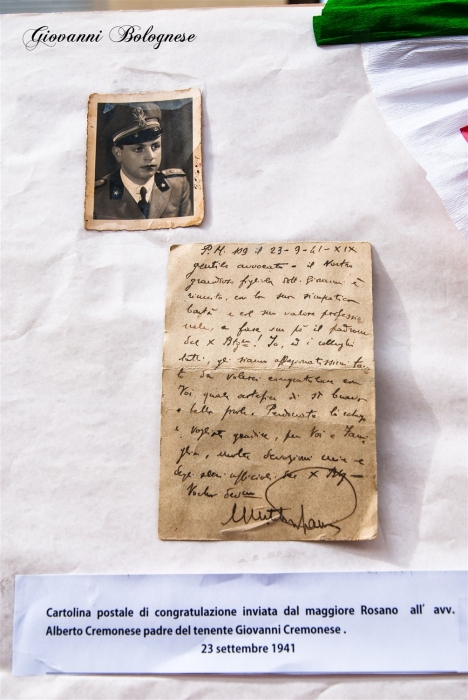 Giovanni Bolognese
P.M. 109 il 23-9-41-XIX
gentile avvocato - il Vostro
grandioso figliolo dott. Giovanni è
riuscito, con la sua simpaticon
e col suo valore professio
nale, a farsi un pò il padrone
del X Btg! Io, ed i colleghi
tutti, gli siamo affezionatissimi
da volerci congratulare con
Voi quale artefice di sì buona
e bella prole. Perdonate
e vogliate gradire, per Voi e Fami
glia, molte devozioni mie e
degli altri ufficiali del X Btg -
Vostro
Cartolina postale di congratulazione inviata dal maggiore Rosano all' avv.
Alberto Cremonese padre del tenente Giovanni Cremonese .
23 settembre 1941